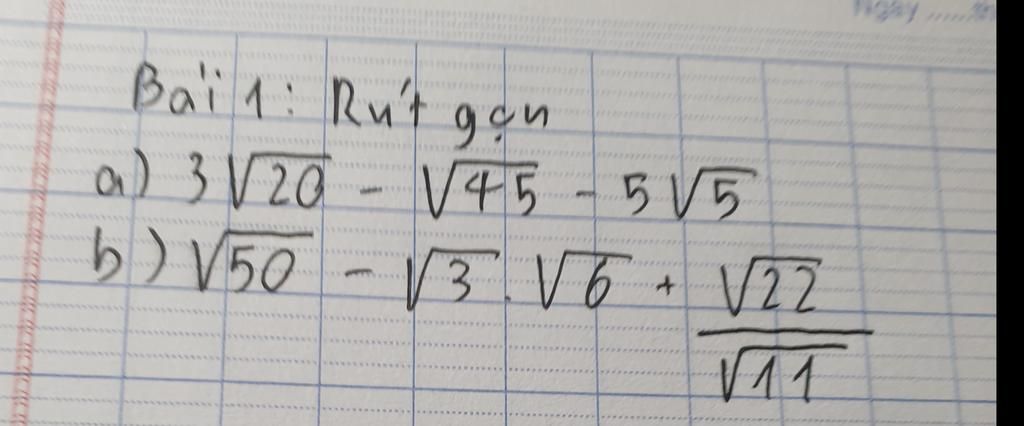 Ngày
Bài 1: Rút gọn
a) 3√20 - √45 - 5√5
b) √50 - √3 . √6 + √22/√11